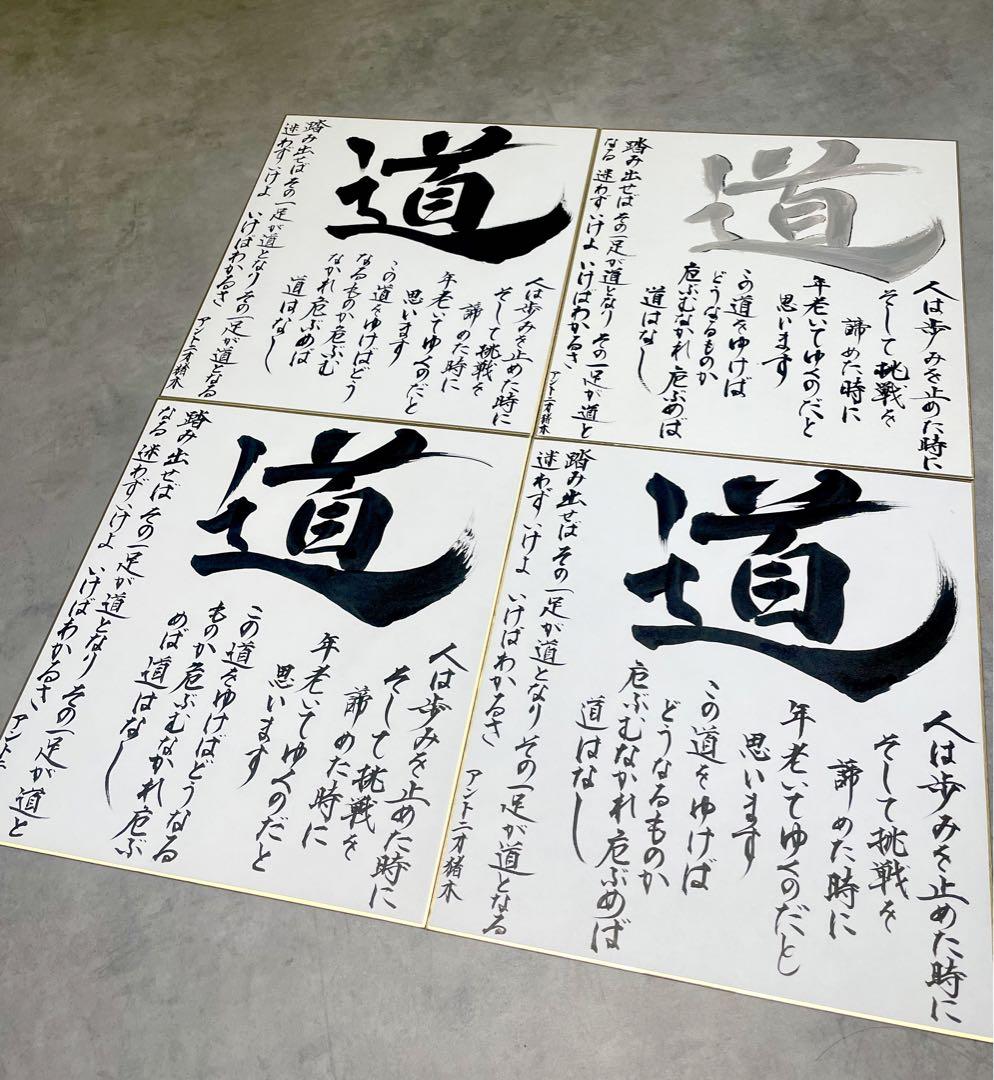 道
人は歩みを止めた時に
そして挑戦を
諦めた時に
年老いてゆくのだと
思います
この道をゆけばどう
なるものか危ぶむ
なかれ危ぶめば
道はなし
踏み出せばその一足が道となりその一足が道となる
迷わずいけよ いけばわかるさ アントニオ猪木
道
人は歩みを止めた時に
そして挑戦を
諦めた時に
年老いてゆくのだと
思います
この道をゆけば
どうなるものか
危ぶむなかれ危ぶめば
道はなし
踏み出せばその一足が道となりその一足が道と
なる 迷わずいけよ いけばわかるさ アントニオ猪木
道
人は歩みを止めた時に
そして挑戦を
諦めた時に
年老いてゆくのだと
思います
この道をゆけばどうなる
ものか危ぶむなかれ危ぶ
めば 道はなし
踏み出せばその一足が道となりその一足が道と
なる 迷わずいけよ いけばわかるさ アントニ
道
人は歩みを止めた時に
そして挑戦を
諦めた時に
年老いてゆくのだと
思います
この道をゆけば
どうなるものか
危ぶむなかれ危ぶめば
道はなし
踏み出せばその一足が道となりその一足が道となる
迷わずいけよ いけばわかるさ アントニオ猪木